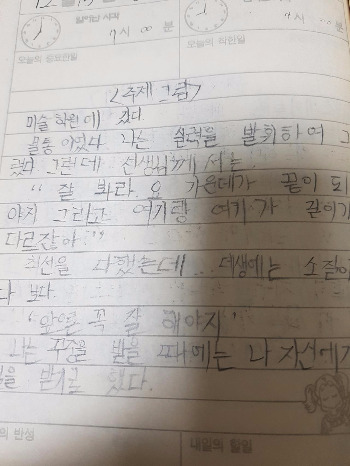 일어난 시각
7시 00분
시 00분
오늘의 중요한일
오늘의 착한일
<주제 그림>
미술 학원에 갔다.
나는 실력을 발휘하여 그
렸다. 그런데 선생님께서는
" 잘 봐라. 요 가운데가 끝이 되
야지 그리고 여기랑 여기가 길이가
다르잖아."
최선을 다했는데 데생에는 소질이
보다.
꼭 잘 해야지'
나는 꾸중을 받을 때에는 나 자신에게
을 받기도 했다.
의 반성
내일의 할일